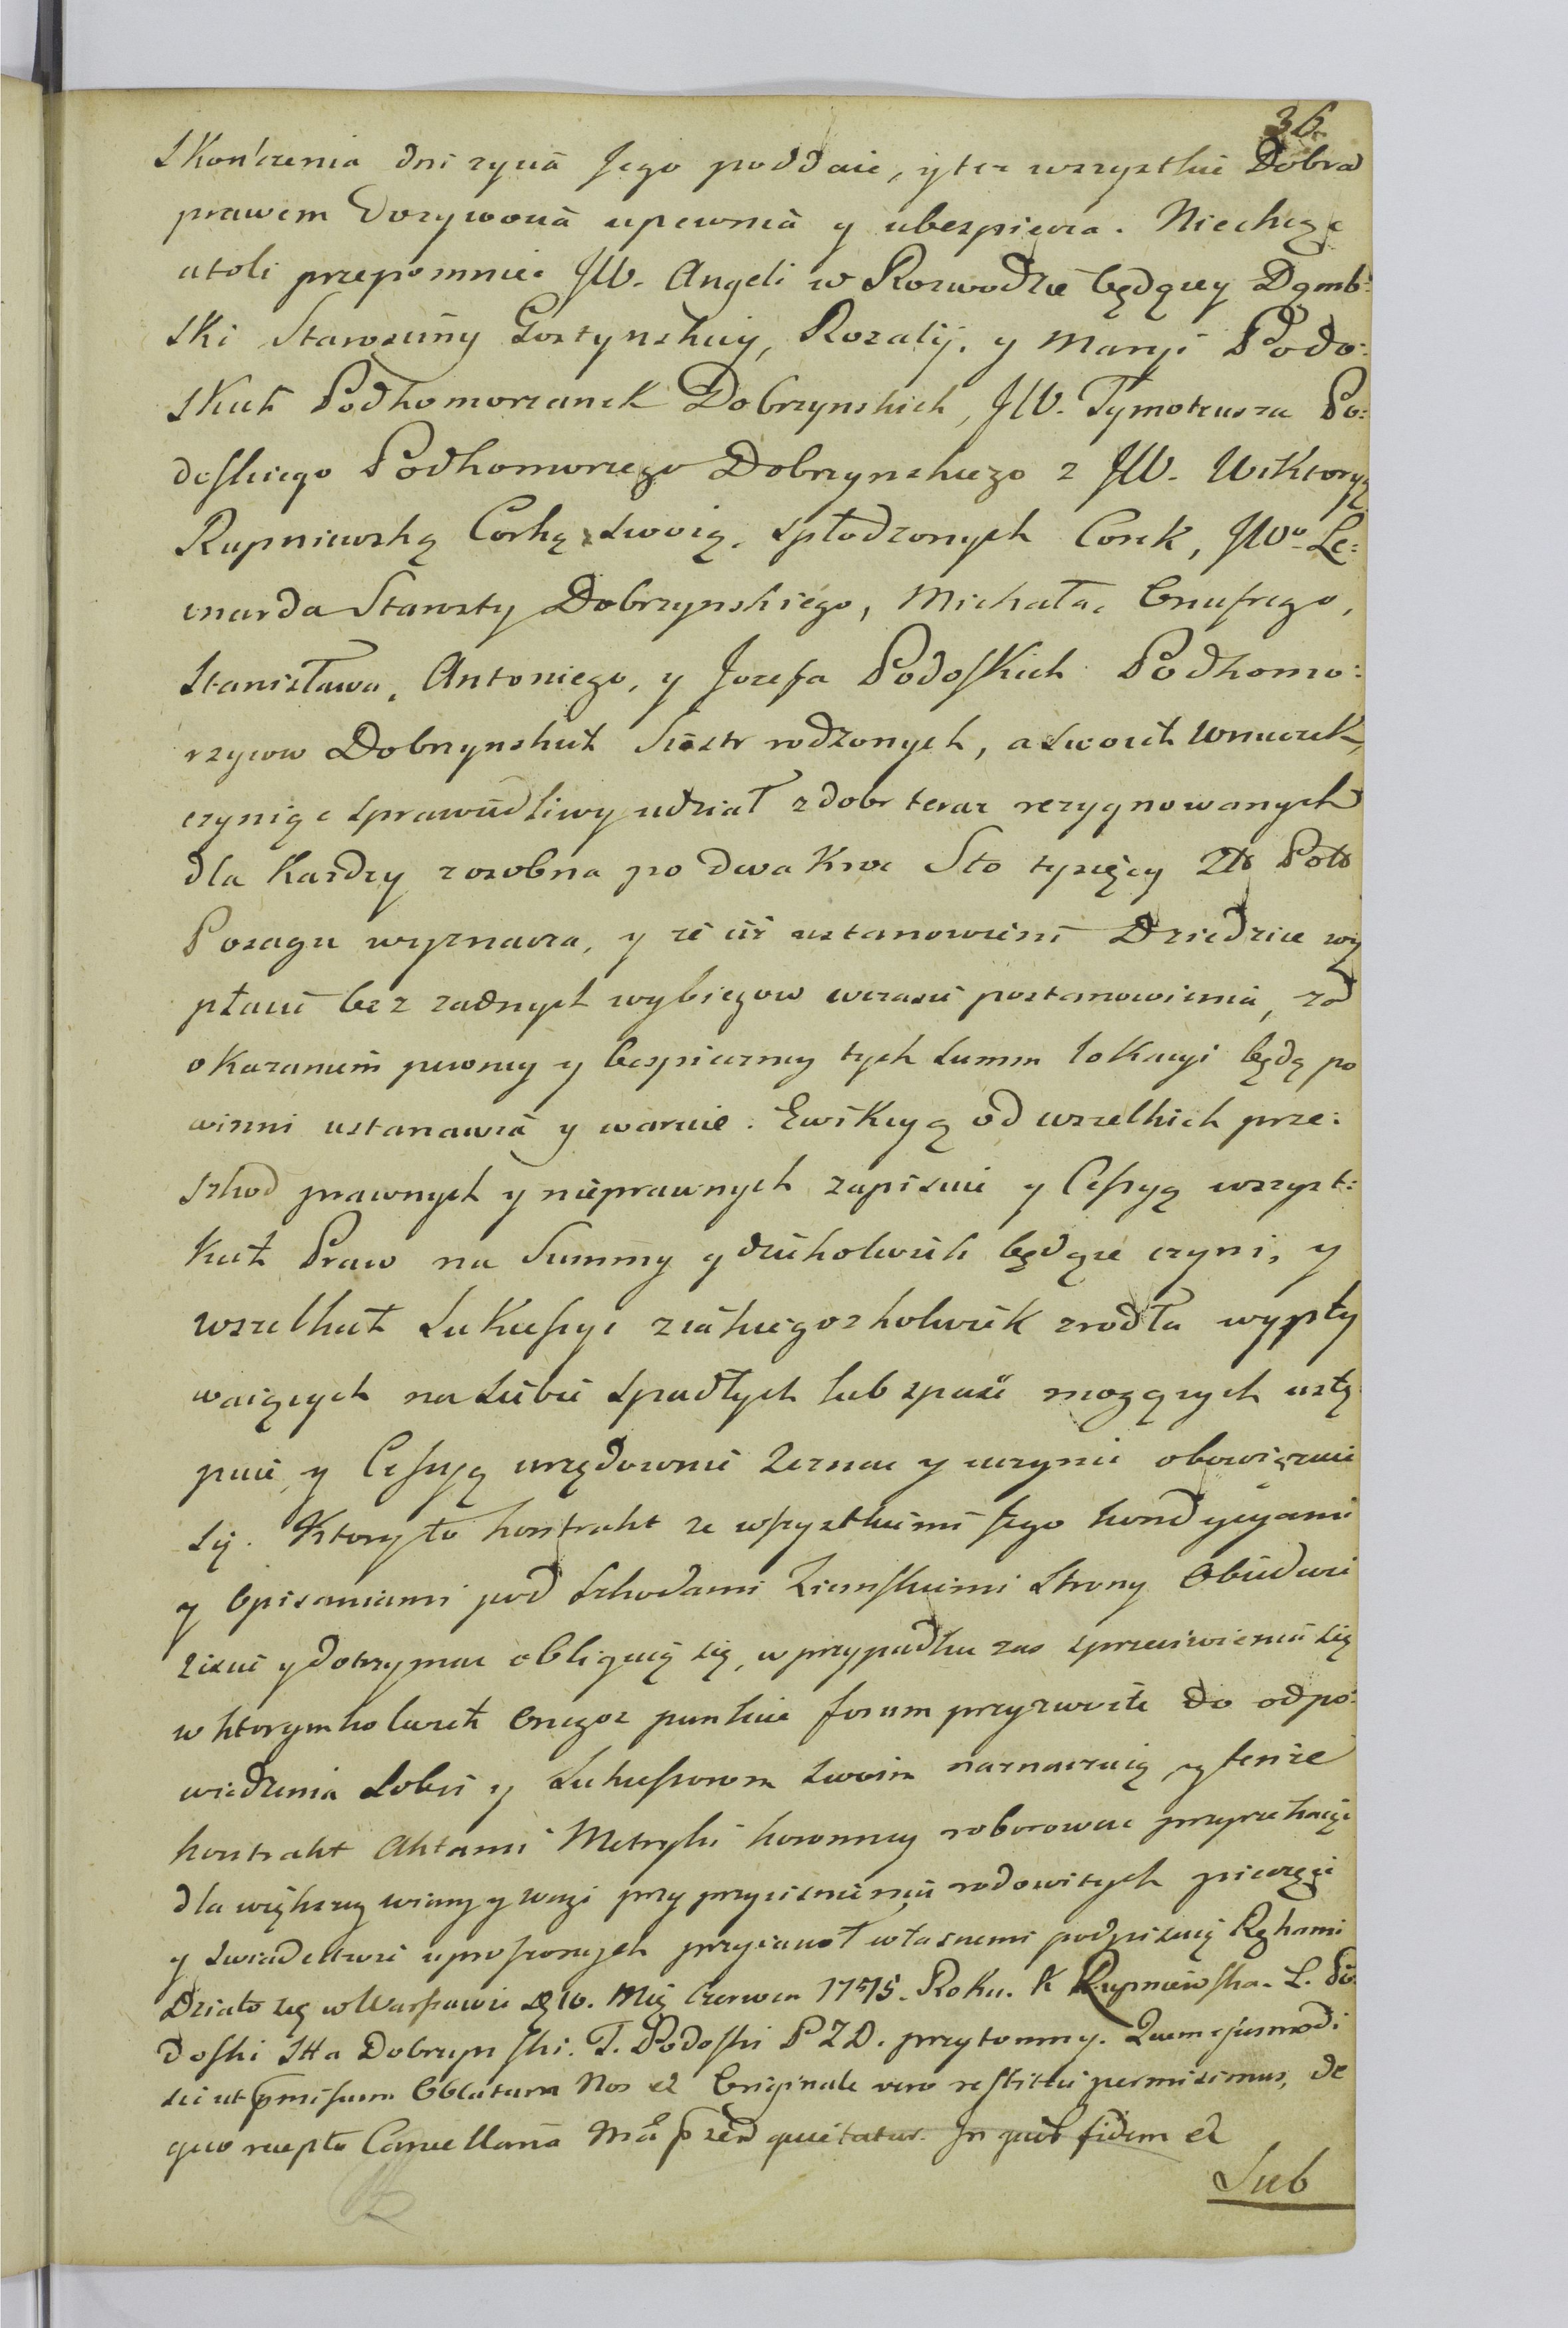 36.
Skonczenia dni zycia Jego poddaie, y też wszystkie Dobra
prawem Dozywocia upewnia y ubezpiecza. Niechcąc
atoli przepomniec JW. Angeli w Rozwodzie będącey Dąmb:
ski Starosciny Gostynskiey, Rozalij, y Maryi Podo:
skich Podkomorzanek Dobrzynskich, JW. Tymoteusza Po:
doskiego Podkomorzego Dobrzynskiego z JW. Wiktoryą
Rupniewską Corką swoią, spłodzonych Corek, JWo. Le:
onarda Starosty Dobrzynskiego, Michała, Onufrego,
Stanisława, Antoniego, y Jozefa Podoskich Podkomo:
rzycow Dobrzynskich Siostr rodzonych, a swoich Wnuczek,
czyniąc sprawiedliwy udział z dobr teraz rezygnowanych
dla Kazdzy z osobna po dwa Kroc Sto tysięcy Zło Polo
Posagu wyznacza, y że ciż ustanowieni Dziedzice wy
płacic bez zadnych wybiegow w czasie postanowienia, za
okazaniem pewney y bespieczney tych summ lokacyi będą po
winni ustanawia y waruie. Ewikcyą od wszelkich prze:
szkod prawnych y nieprawnych zapisuie y Cessyą wszyst:
kich Praw na Summy gdziekolwiek będące czyni, y
wszelkich Sukcessyi z iakiegozkolwiek zrodła wypły
waiących na siebie spadłych lub spaść mogących ustę
puie, y Cessyą urzędownie zeznac y uczynic obowięzuie
się. Ktory to kontrakt ze wszystkiemi Jego kondycyami
y Opisaniami pod szkodami Ziemskiemi Strony Obiedwie
ziscic y dotrzymac obliguią się, w przypadku zas sprzeciwienia się
w ktorymkolwiek Onegoz punkcie forum przyzwoite do odpo:
wiedzenia sobie y Sukcessorom swoim naznaczaią, y tenże
kontrakt Aktami Metryki koronney roborowac przyrzekaiąc
dla większey wiary y wagi przy przycisnieniu rodowitych pieczęci
y swiadectwie uproszonych przyiacioł własnemi podpisuią Rękami
Działo się w Warszawie d. 10. Mca Czerwca 1775. Roku. K Rupniewska. L. Po
doski Stta Dobrzynski. T. Podoski P Z D. przytomny. Quem ejusmodi
sic ut pmissum Oblatum Nos et Originale vero restitui permisimus, de
quo recepto Cancellaria Mca p zed quietatur. In quor fidem et
Sub